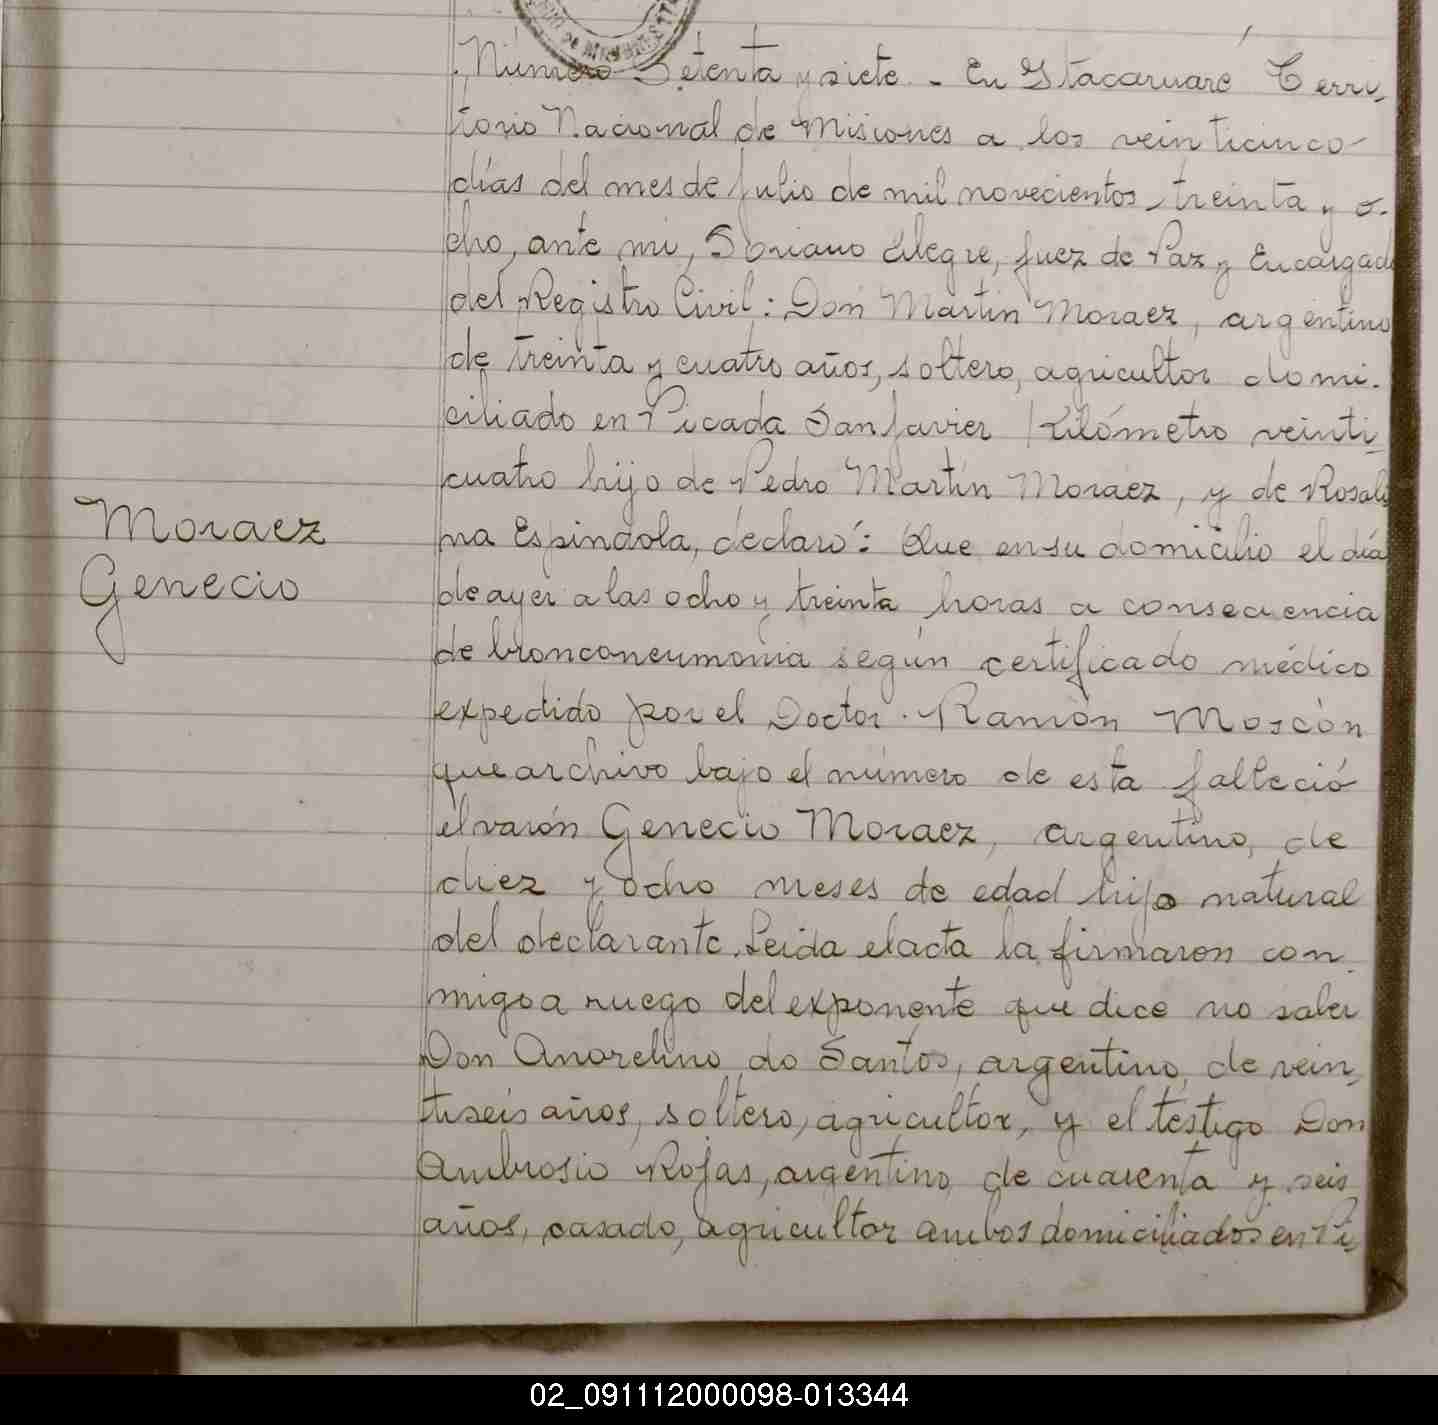 Número Setenta y siete - En Itacaruaré Terri-
torio Nacional de Misiones a los veinticinco
días del mes de Julio de mil novecientos treinta y o-
cho, ante mi, Soriano Alegre, Juez de Paz y Encargado
del Registro Civil: Don Martín Moraez, argentino
de treinta y cuatro años, soltero, agricultor domi-
ciliado en Picada San Javier Kilómetro veinti-
cuatro hijo de Pedro Martín Moraez, y de Rosali-
na Espindola, declaró: Que en su domicilio el día
de ayer a las ocho y treinta horas a consecuencia
de bronconeumonia según certificado médico
expedido por el Doctor Ramón Moscón
que archivo bajo el número de esta falleció
el varón Genecio Moraez, argentino, de
diez y ocho meses de edad hijo natural
del declarante. Leida el acta la firmaron con-
migo a ruego del exponente que dice no saber
Don Anorelino do Santos, argentino, de vein-
tiseis años, soltero, agricultor, y el testigo Don
Ambrosio Rojas, argentino, de cuarenta y seis
años, casado, agricultor ambos domiciliados en Pi-
Moraez
Genecio
02_091112000098-013344